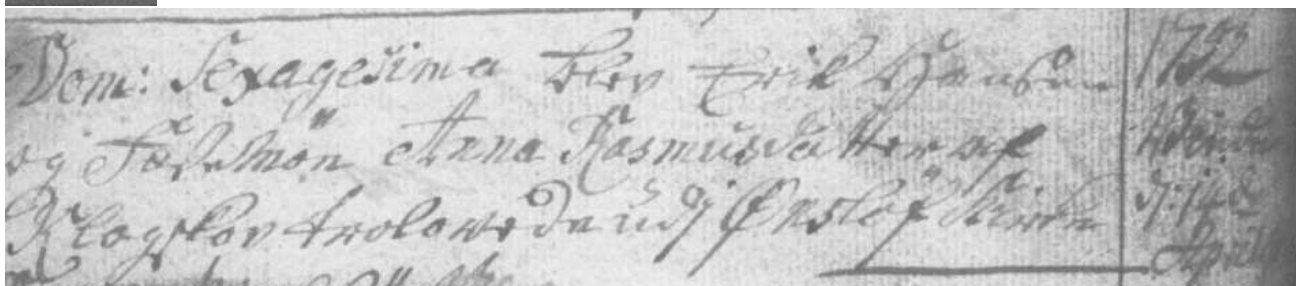 Dom: Sexagesima blev Erik Hansen
og Fæstemön Anna Rasmusdatter af
Klagskov trolovede udj Ørslöf Kirke
1732
d: 14de
April